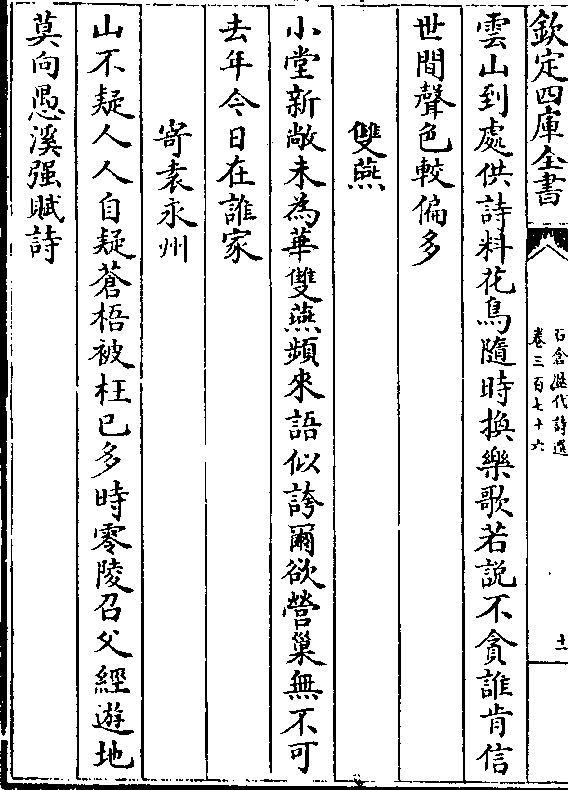 欽定四庫全書
石倉歷代詩選
卷三百七十六
十一
雲山到處供詩料花鳥隨時換樂歌若說不貪誰肯信
世間聲色較偏多
雙燕
小堂新敞未為華雙燕頻來語似誇爾欲營巢無不可
去年今日在誰家
寄袁永州
山不疑人人自疑蒼梧被枉已多時零陵召父經遊地
莫向愚溪强賦詩